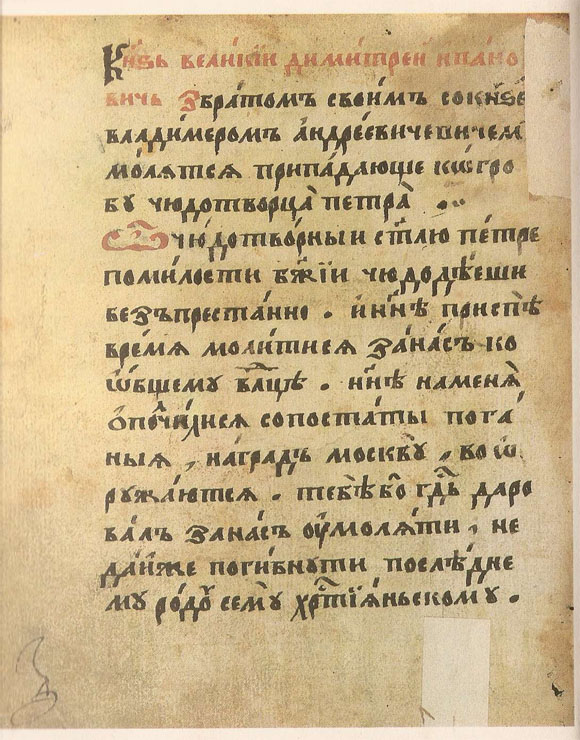 Кн҃ѕь вели́кїи дими́трей ива́но
вичь з̾бра́томъ свои́мъ со кн҃зе
влади́мером̾ а҆ндре́евиче
мо́лѧтсѧ припа́дающе къ гро
бу чюдотво́рца петра̀ .
Ѽ чю́дотво́рныи ст҃лю пе́тре
по ми́лости бж҃їи чюдодѣ́еши
безъпреста́нно . и҆ нн҃ѣ приспѣ̀
вре́мѧ моли́тисѧ за на́съ ко
ѡ҆́бщему влⷣцѣ . нн҃ѣ на менѧ̀
сопоста́ты пога́
ныѧ , на гра́дъ москву̀ , во ѡ҆
ружа́ютсѧ . тебѣ́ бо гдⷭ҇ь даро
ва́лъ за на́съ ᲂу҆моля́ти , не
да́йже поги́бнути послѣ́дне
му ро́ду сему̀ хрⷭ҇тїѧ́ньскому .